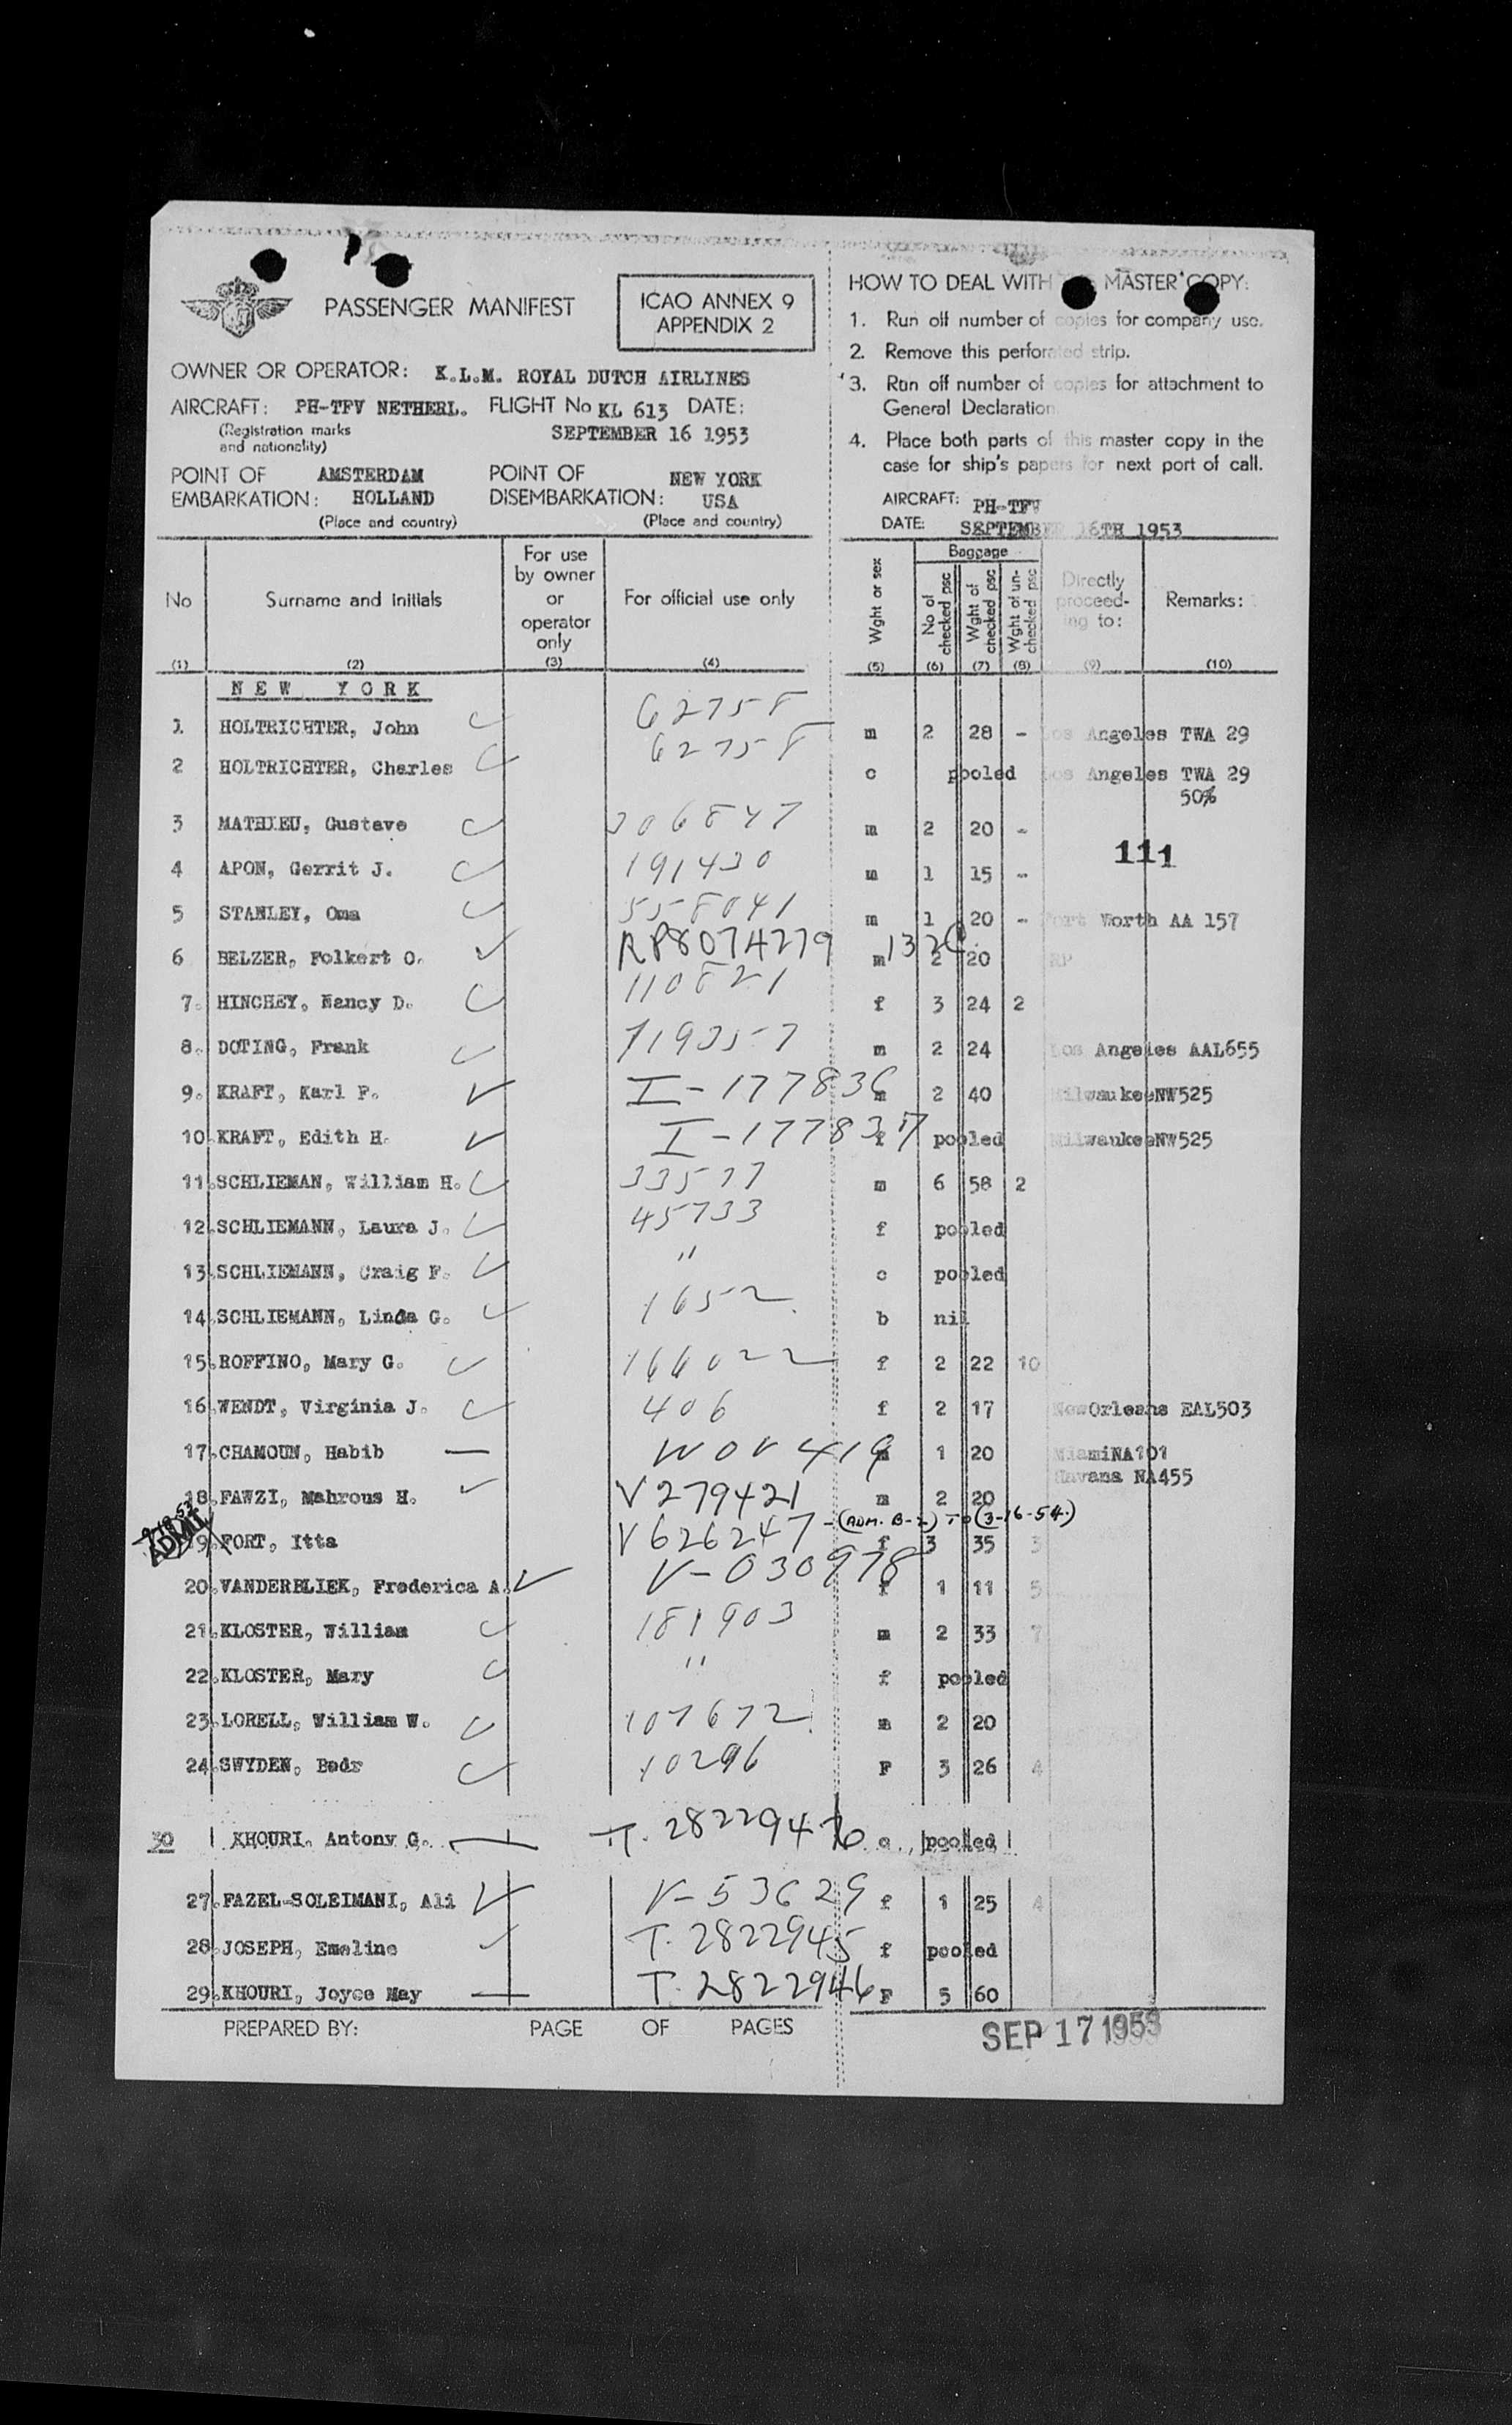 PASSENGER MANIFEST
ICAO ANNEX 9
APPENDIX 2
OWNER OR OPERATOR: K.L.M. ROYAL DUTCH AIRLINES
AIRCRAFT: PH-TFV NETHERL. FLIGHT No KL 613 DATE:
(Registration marks
and nationality)
SEPTEMBER 16 1953
POINT OF EMBARKATION: AMSTERDAM HOLLAND
POINT OF DISEMBARKATION: NEW YORK USA
(Place and country) (Place and country)
HOW TO DEAL WITH MASTER COPY:
1. Run off number of copies for company use.
2. Remove this perforated strip.
3. Run off number of copies for attachment to
General Declaration
4. Place both parts of this master copy in the
case for ship's papers for next port of call.
AIRCRAFT: PH-TFV
DATE: SEPTEMBER 16TH 1953
No Surname and initials For use by owner or operator only For official use only Wght or sex Baggage No of checked psc Wght of checked psc Wght of un-checked psc Directly proceed-ing to: Remarks:
(1) (2) (3) (4) (5) (6) (7) (8) (9) (10)
NEW YORK
1 HOLTRICHTER, John 62758 m 2 28 - Los Angeles TWA 29
2 HOLTRICHTER, Charles 62758 c pooled Los Angeles TWA 29
50%
3 MATHIEU, Gustave 306847 m 2 20 -
111
4 APON, Gerrit J. 191430 m 1 15 -
5 STANLEY, Oma 558041 m 1 20 - Fort Worth AA 157
6 BELZER, Folkert O. RP8074279 m 2 20 RP
7. HINCHEY, Nancy D. 110821 f 3 24 2
8. DOTING, Frank 719357 m 2 24 Los Angeles AAL655
9. KRAFT, Karl F. I-177836 m 2 40 MilwaukeeNW525
10 KRAFT, Edith H. I-177837 f pooled MilwaukeeNW525
11. SCHLIEMAN, William H. 33577 m 6 58 2
12. SCHLIEMANN, Laura J. 45733 f pooled
13. SCHLIEMANN, Craig F. " c pooled
14. SCHLIEMANN, Linda G. 1652 b nil
15. ROFFINO, Mary G. 166022 f 2 22 10
16. WENDT, Virginia J. 406 f 2 17 NewOrleans EAL503
17. CHAMOUN, Habib WOV 419 m 1 20 MiamiNA101
Havana NA455
18. FAWZI, Mahrous H. V279421 m 2 20
ADMT
19. FORT, Itta V626247 - (ADM. B-2) TO (3-16-54) f 3 35 3
20. VANDERBLIEK, Frederica A. V-030978 f 1 11 5
21. KLOSTER, William 181903 m 2 33 7
22. KLOSTER, Mary " f pooled
23. LORELL, William W. 107672 m 2 20
24. SWYDEN, Bedr 10296 F 3 26 4
30 KHOURI, Antony G. T. 2822947 c pooled
27. FAZEL-SOLEIMANI, Ali V-53629 f 1 25 4
28. JOSEPH, Emeline T. 2822945 f pooled
29. KHOURI, Joyce May T. 2822946 F 5 60
PREPARED BY: PAGE OF PAGES
SEP 17 1953